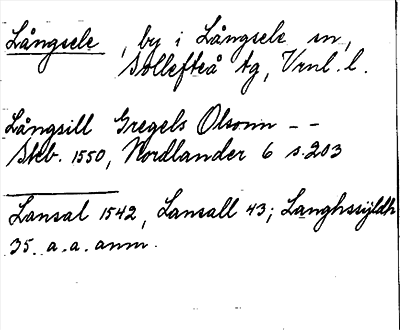 Långsele, by i Långsele sn,
Sollefteå tg, Vrnl. l.
Långsill Gregels Olsonn – –
Skb. 1550, Nordlander 6 s. 203
Lansal 1542, Lansall 43; Langhssyldh
35. a. a. anm.